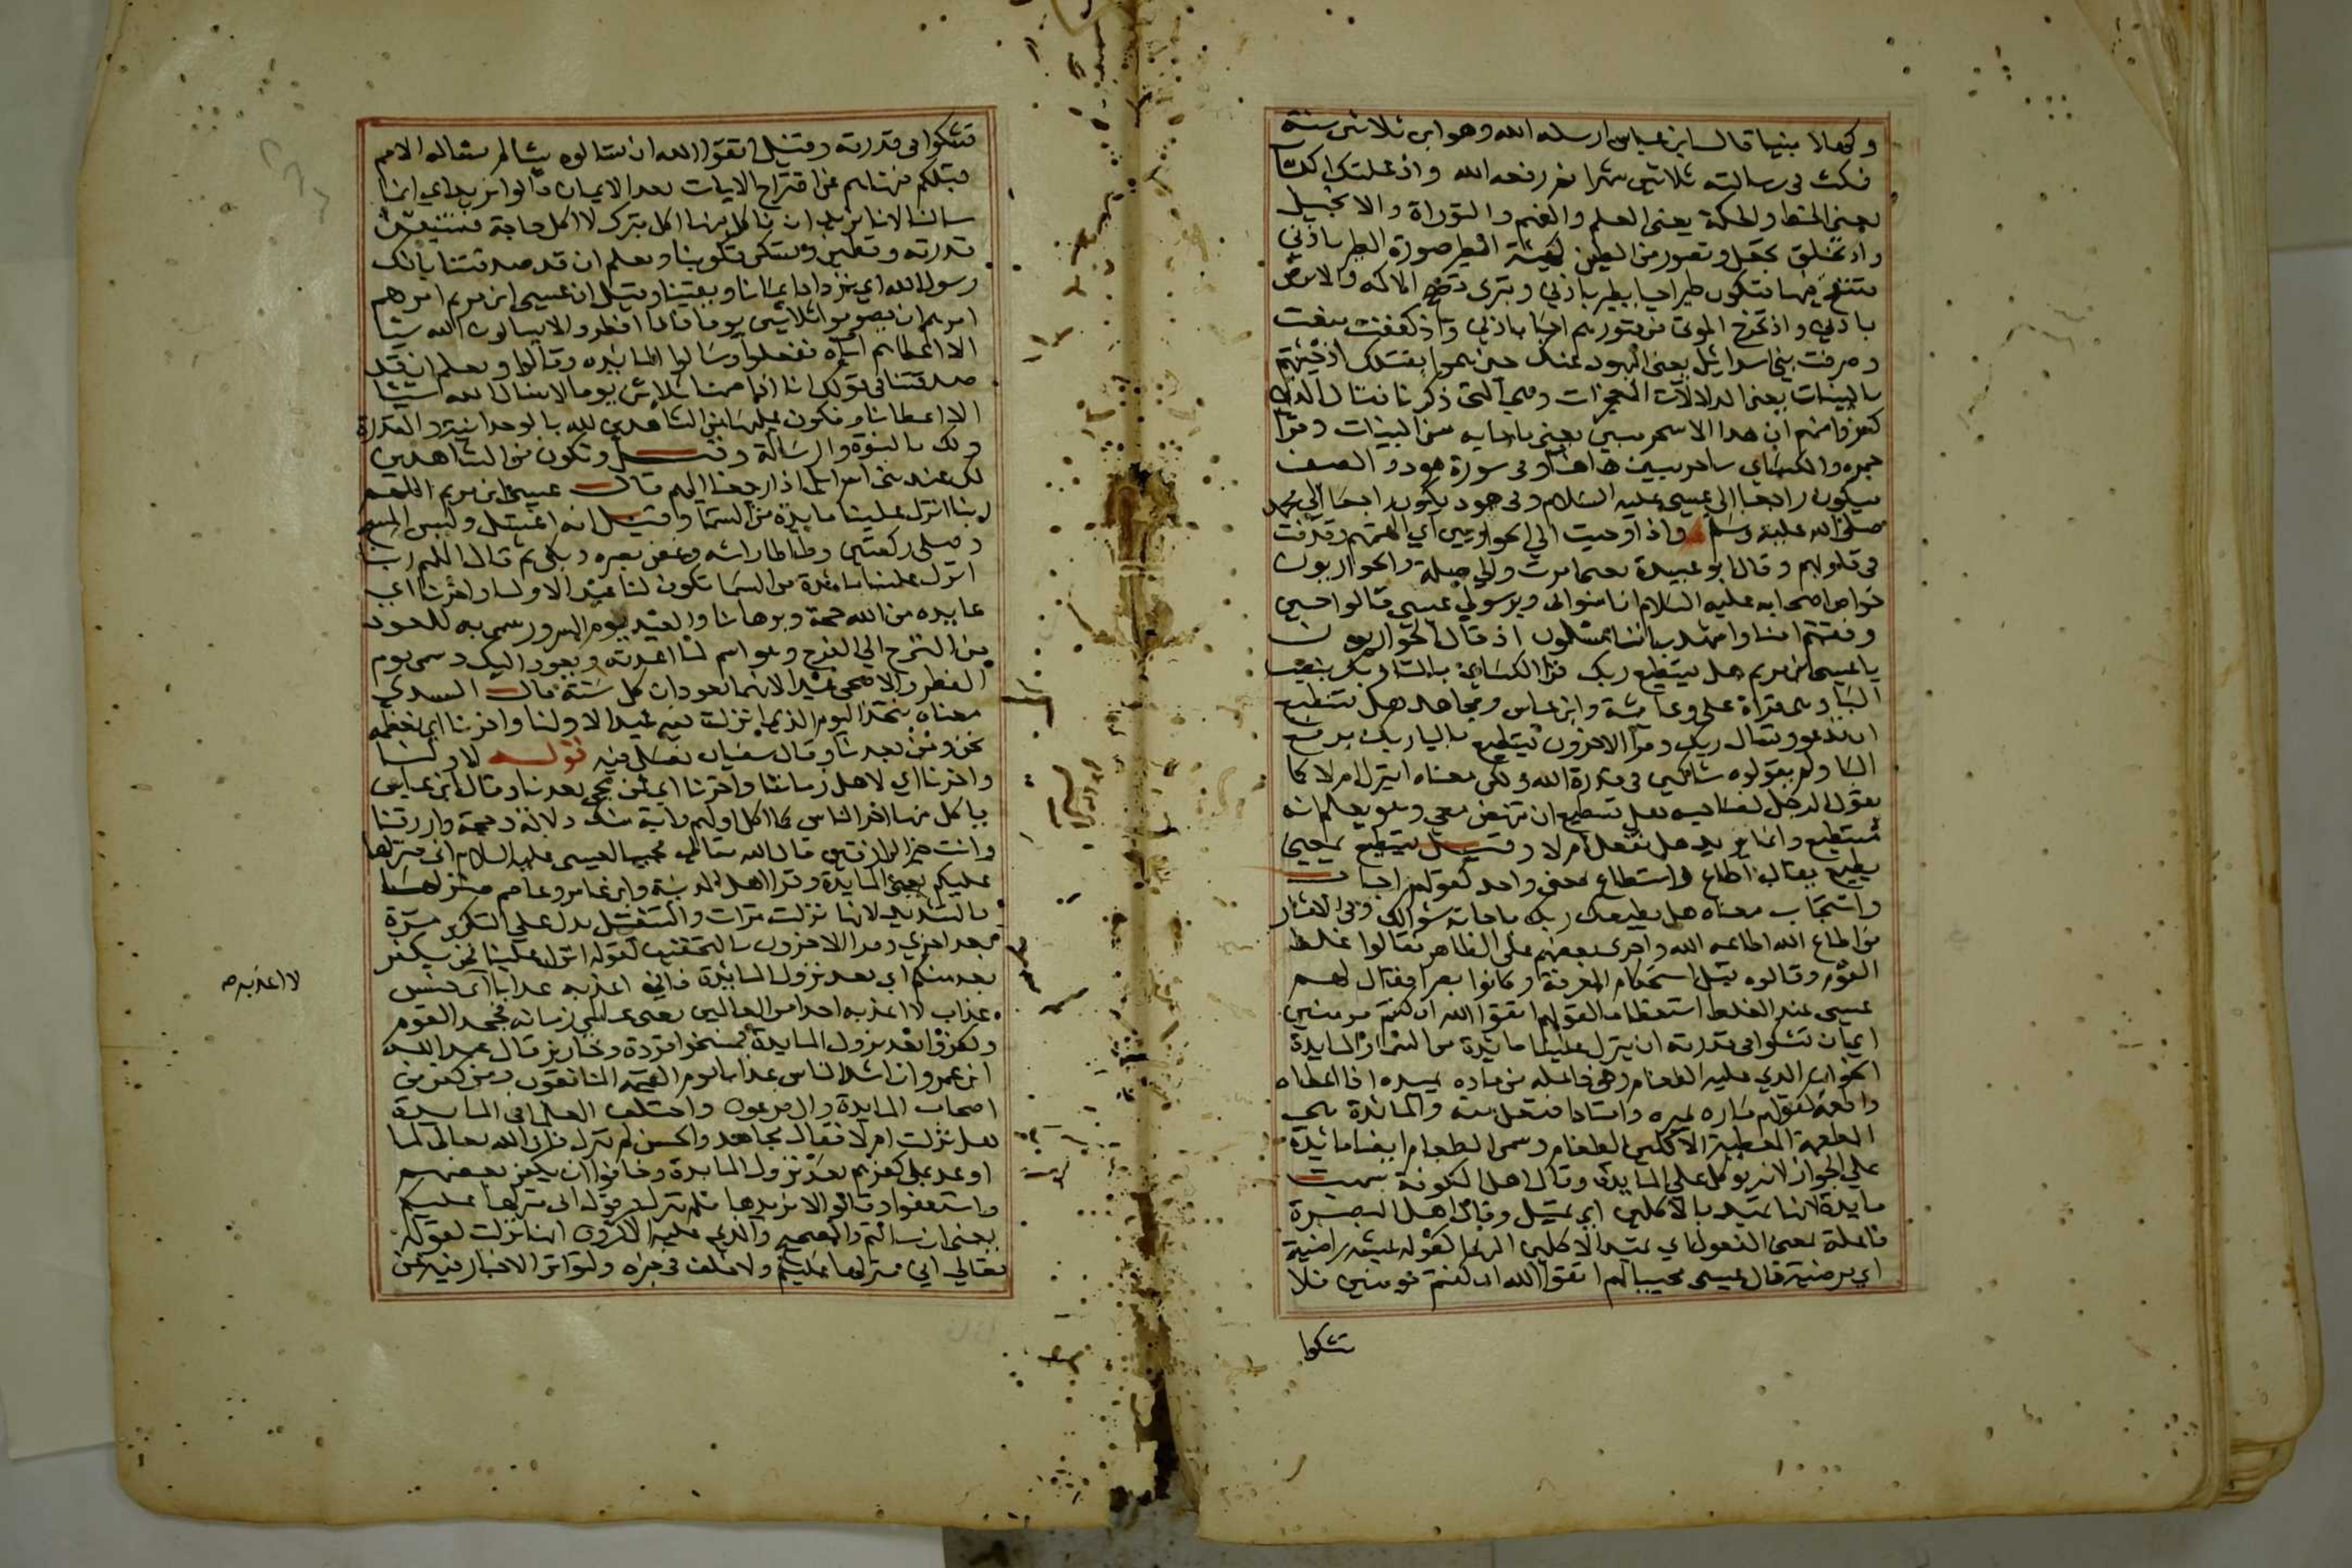 وكهلا نبيا قال ابن عباس ارسله الله وهو ابن ثلاثين سنة
فمكث في رسالته ثلاثين شهرا ثم رفعه الله واذ علمتك الكتاب
يعني الخط والحكمة يعني العلم والفهم والتوراة والانجيل
واذ تخلق تجعل وتصور من الطين كهيئة الطير صورة الطير باذني
فتنفخ فيها فتكون طيرا حيا يطير باذني وتبرئ وتصح الاكمه والابرص
باذني واذ تخرج الموتى من قبورهم احيا باذني واذ كففت منعت
وصرفت بني اسرائيل يعني اليهود عنك حين هموا بقتلك اذ جئتهم
بالبينات يعني الدلالات المعجزات وهي التي ذكرنا فقال الذين
كفروا منهم ان هذا الا سحر مبين يعني ما جا به من البينات وقرا
حمزه والكسائي ساحر مبين هاهنا وفي سورة هود والصف
فيكون راجعا الى عيسى عليه السلام وفي هود يكون راجعا الي محمد
صلى الله عليه وسلم واذ اوحيت الي الحواريين اي الهمتهم وقذفت
في قلوبهم وقال ابو عبيدة يعني امرت والي صلة والحواريون
خواص اصحابه عليه السلام ان امنوا بي وبرسولي عيسي قالوا حين
وفقتهم امنا واشهد باننا مسلمون اذ قال الحواريون
يا عيسى ابن مريم هل يستطيع ربك قرا الكسائي بالتا ربك بنصب
البا وهي قراة علي وعايشة وابن عباس ومجاهد هل تستطيع
ان تدعو وتسال ربك وقرا الاخرون يستطيع باليا ربك برفع
البا ولم يقولوه شاكين في قدرة الله ولكن معناه اينزل ام لا كما
يقول الرجل لصاحبه هل تستطيع ان تنهض معي وهو يعلم انه
يستطيع وانما يريد هل تفعل ام لا وقيل يستطيع بمعني
يطيع يقال اطاع واستطاع بمعنى واحد كقولهم اجاب
واستجاب معناه هل يطيعك ربك باجابة سؤالك وفي الاثار
من اطاع الله اطاعه الله واجرى بعضهم على الظاهر فقالوا غلط
القوم وقالوه قبل استحكام المعرفة وكانوا بشرا فقال لهم
عيسى عند الغلط استعظاما لقولهم اتقوا الله ان كنتم مومنين
اي ان تشكوا في قدرته ان ينزل علينا مائدة من السما والمايدة
الخوان الذي عليه الطعام وهي فاعلة من ماده يميده اذا اعطاه
واطعمه كقولهم ماره يميره وامتاد افتعل منه والمائدة هي
المطعمة المعطية الاكلين الطعام وسمى الطعام ايضا مائدة
علي الجواز لانه يوكل على المايدة وقال اهل الكوفة سميت
مايدة لانها تميد بالاكلين اي تميل وقال اهل البصرة
فاعلة بمعنى المفعول اي يميد الاكلين اليها كقوله عيشة راضية
اي مرضية قال عيسى مجيبا لهم اتقوا الله ان كنتم مومنين فلا
تشكوا
تشكوا في قدرته وقيل اتقوا الله ان تسالوه شيا لم يساله الامم
قبلكم فنهاهم عن اقتراح الايات بعد الايمان قالوا نريد اي انما
سالنا لانا نريد ان ناكل منها اكل تبرك لا اكل حاجة فنستيقن
قدرته وتطمئن وتسكن قلوبنا ونعلم ان قد صدقتنا بانك
رسول الله اي نزداد ايمانا ويقينا وقيل ان عيسى ابن مريم امرهم
امرهم ان يصوموا ثلاثين يوما فاذا افطروا لا يسالون الله شيا
الا اعطاهم اياه ففعلوا وسالوا المايده وقالوا ونعلم ان قد
صدقتنا في قولك انا اذا صمنا ثلاثين يوما لا نسال الله شيئا
الا اعطانا ونكون عليها من الشاهدين لله بالوحدانية والقدرة
ولك بالنبوة والرسالة وقيل ونكون من الشاهدين
لك عند بني اسرائيل اذا رجعنا اليهم قال عيسى ابن مريم اللهم
ربنا انزل علينا مايدة من السما وقيل انه اغتسل ولبس المسح
وصلى ركعتين وطاطا راسه وغض بصره وبكى ثم قال اللهم ربنا
انزل علينا مائدة من السما تكون لنا عيدا لاولنا واخرنا اي
عايده من الله حجة وبرهانا والعيد يوم السرور سمي به للعود
من الترح الي الفرح وهو اسم لما اعدته ويعود اليك وسمى يوم
الفطر والاضحى عيدا لانهما يعودان كل سنة قال السدي
معناه نتخذ اليوم الذي انزلت فيه عيدا لاولنا واخرنا اي نعظمه
نحن ومن بعدنا وقال سفيان نصلي فيه قوله لاولنا
واخرنا اي لاهل زماننا واخرنا اي لمن يجي بعدنا وقال ابن عباس
ياكل منها اخر الناس كما اكل اولهم واية منك دلالة وحجة وارزقنا
وانت خير الرازقين قال الله تعالى مجيبا لعيسى عليه السلام اني منزلها
عليكم يعني المايدة وقرا اهل المدينة وابن عامر وعاصم منزلها
بالتشديد لانها نزلت مرات والتفعيل يدل علي التكرير مرة
بعد اخري وقرا الاخرون بالتخفيف لقوله انزل علينا فمن يكفر
بعد منكم اي بعد نزول المايدة فاني اعذبه عذابا اي جنس
عذاب لا اعذبه احدا من العالمين يعنى عالمي زمانه فجحد القوم
وكفروا بعد نزول المايدة فمسخوا قردة وخنازير قال عبد الله
ابن عمرو ان اشد الناس عذابا يوم القيمة المنافقون ومن كفر من
اصحاب المايدة وال فرعون واختلف العلما في المايدة
هل نزلت ام لا فقال مجاهد والحسن لم تنزل فان الله تعالى لما
اوعد على كفرهم بعد نزول المايدة وخافوا ان يكفر بعضهم
واستعفوا وقالوا لا نريدها فلم تنزل وقوله اني منزلها عليكم
يعني ان سالتم والصحيح والذي عليه الاكثرون انها نزلت لقوله
تعالى اني منزلها عليكم ولا خلف في خبره ولتواتر الاخبار فيه عن
لا اعذبه صح